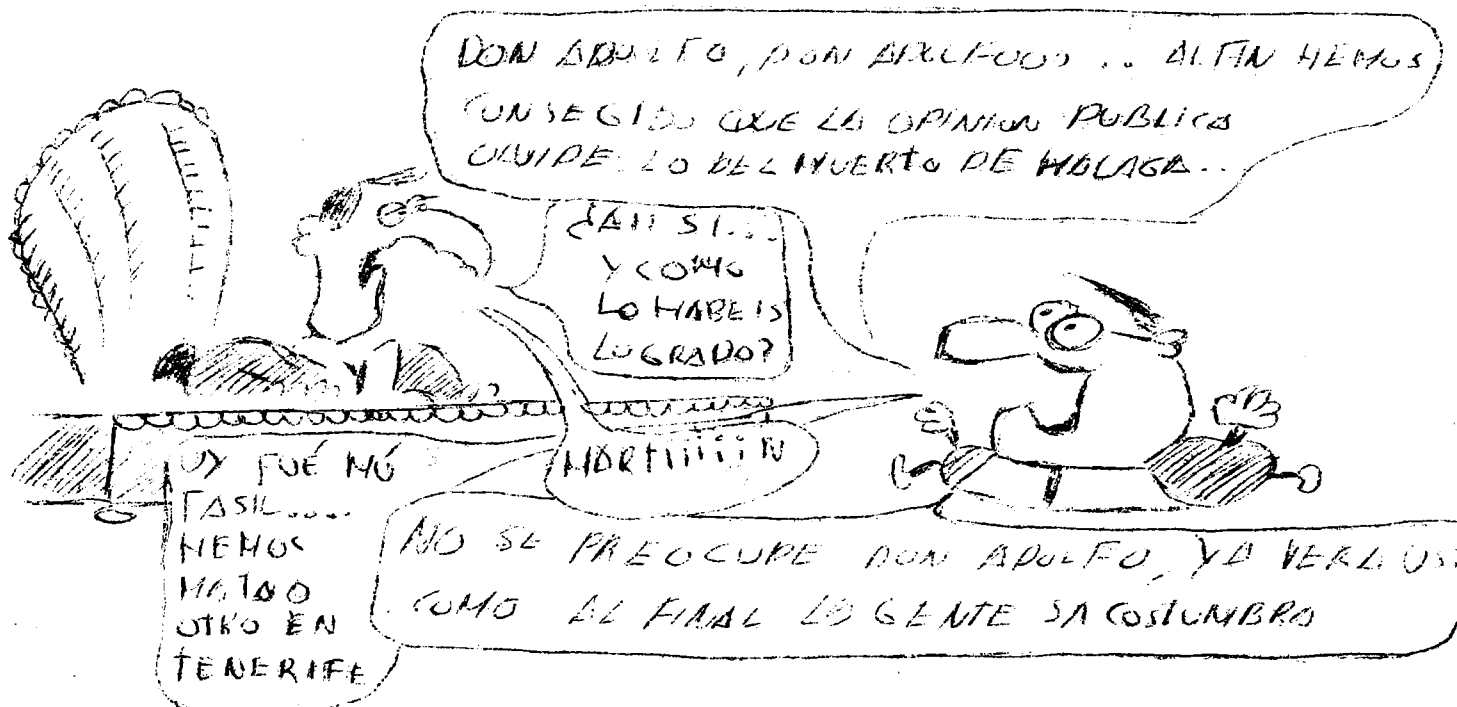 DON ADOLFO, DON ADOLFOOO... AL FIN HEMOS
CONSEGIDO QUE LA OPINION PUBLICA
OLVIDE LO DEL MUERTO DE MALAGA..
¿AH SI...
Y COMO
LO HABEIS
LOGRADO?
UY FUÉ MÚ
FASIL....
HEMOS
MATAO
OTRO EN
TENERIFE
MARTIIIIIN
NO SE PREOCUPE DON ADOLFO, YA VERA
COMO AL FINAL LA GENTE SACOSTUMBRA